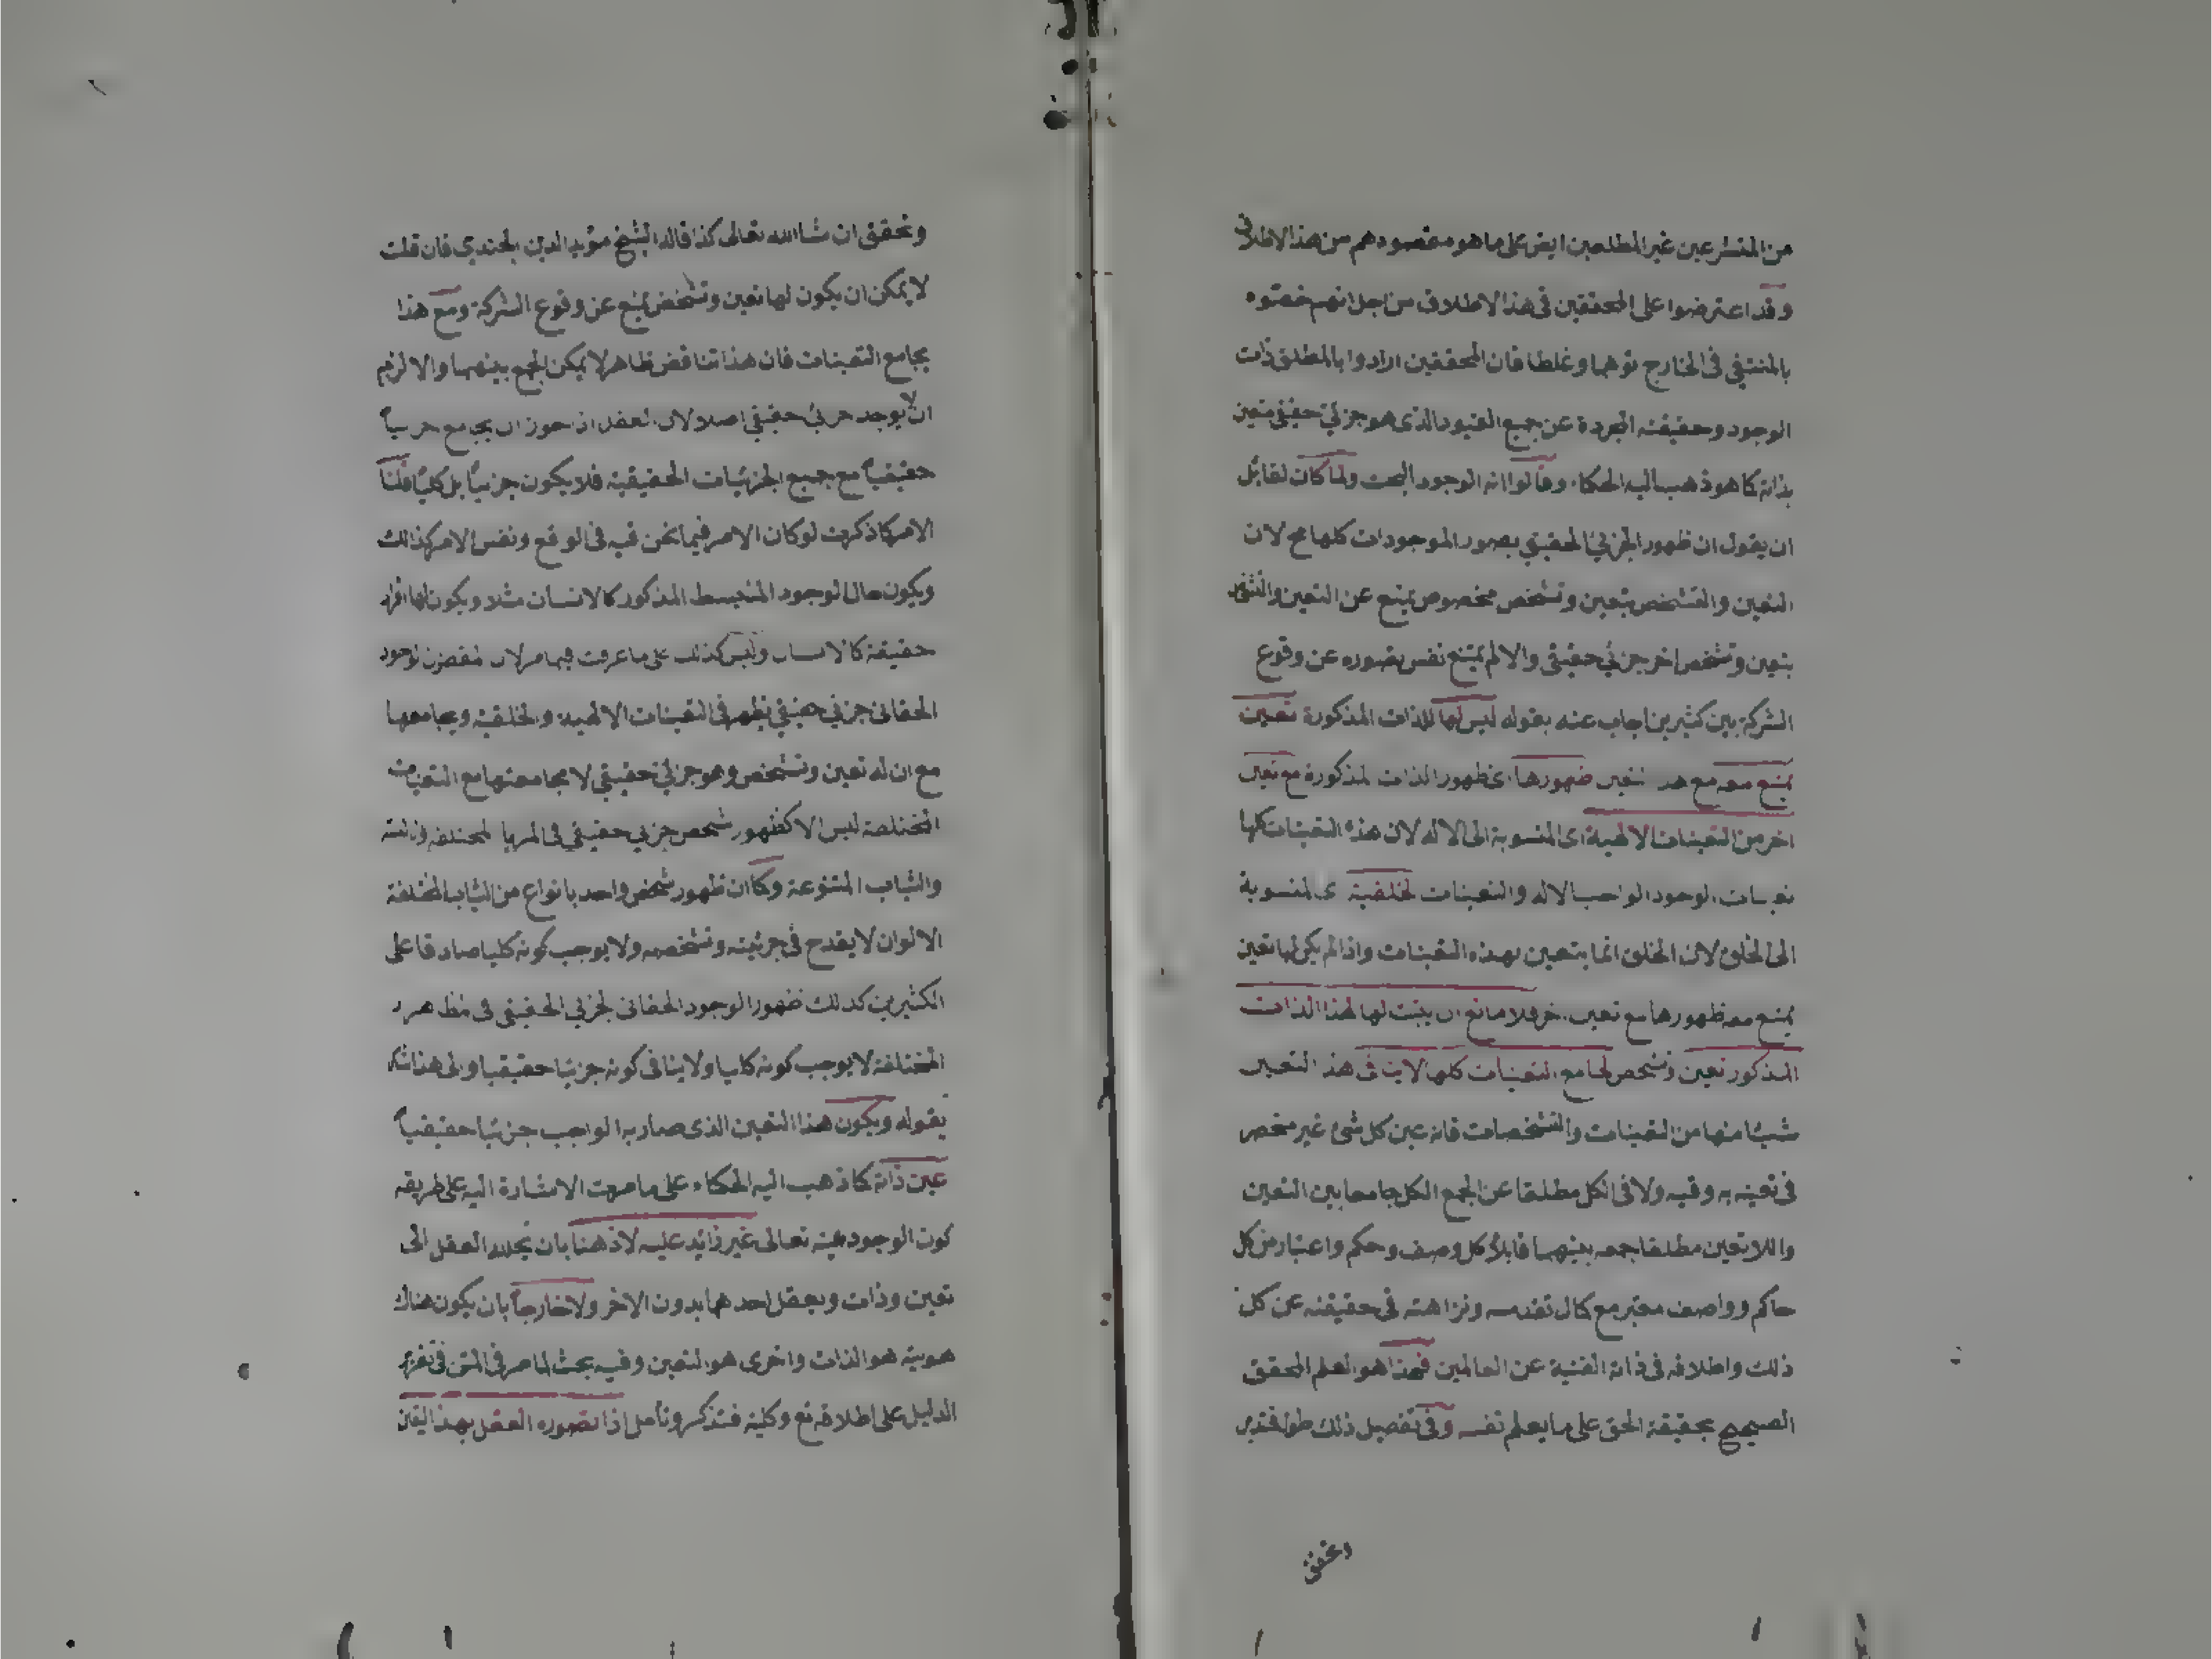 من المتشرعين غير المطلعين ايض على ما هو مقصودهم من هذا الاطلاق
وقد اعترضوا على المحققين فى هذا الاطلاق من اجل انهم خصّوه
بالمنتفي فى الخارج توهما وغلطا فان المحققين ارادوا بالمطلق ذات
الوجود وحقيقته المجردة عن جميع القيود الذى هو جزئي حقيقي متعين
بذاته كما هو ذهب اليه الحكماء وقالوا انه الوجود البحت ولما كان لقائل
ان يقول ان ظهور الجزئي الحقيقي بصور الموجودات كلها مح لان
التعين والتشخص بتعين وتشخص مخصوص يمتنع عن التعين والتشخص
بتعين وتشخص اخر جزئي حقيقي والا لم يمتنع نفس تصوره عن وقوع
الشركة بين كثيرين اجاب عنه بقوله ليس لها للذات المذكورة تعين
يمتنع معه مع هذا التعين ظهورها اى ظهور الذات المذكورة مع تعين
اخر من التعينات الالهية اى المنسوبة الى الاله لان هذه التعينات كلها
تعينات الوجود الواجب الاله والتعينات الخلقية اى المنسوبة
الى الخلق لان الخلق انما يتعين بهذه التعينات واذا لم يكن لها تعين
يمتنع معه ظهورها مع تعين اخر فلا مانع ان يثبت لها لهذا الذات
المذكور تعين وتشخص لجامع التعينات كلها لا ينافى هذ التعين
شيئا منها من التعينات والتشخصات فانه عين كل شئ غير منحصر
فى تعينه به وفيه ولا فى الكل مطلقا عن الجمع الكل جامعا بين التعين
واللاتعين مطلقا جمعه بينهما قابلاً كل وصف وحكم واعتبار من كل
حاكم وواصف معتبر مع كمال تقدسه ونزاهته فى حقيقته عن كل
ذلك واطلاقه فى ذاته الغنية عن العالمين فهذا هو العلم المحقق
الصحيح بحقيقة الحق على ما يعلم نفسه وفى تفصيل ذلك طول فتدبر
وتحقق
وتحقق ان شا الله تعالى كذا قاله الشيخ مؤيد الدين الجندي فان قلت
لا يمكن ان يكون لها تعين وتشخص يمنع عن وقوع الشركة ومع هذا
يجامع التعينات فان هذا تناقض ظاهر لا يمكن الجمع بينهما والا لزم
ان لا يوجد جزئي حقيقي اصلا لان العقل اذ جوز ان يجامع جزئياً
حقيقياً مع جميع الجزئيات الحقيقية فلا يكون جزئياً بل كلياً قلنا
الامر كما ذكرت لو كان الامر فيما نحن فيه فى الوقع ونفس الامر كذالك
ويكون حال الوجود المنبسط المذكور كالانسان مثلا ويكون لها افراد
حقيقة كالانسان وليس كذلك على ما عرفت فيما مر لان الوجود
الحقانى جزئي حقيقي يظهر فى التعينات الالهية والخلقية ويجامعها
مع ان له تعين وتشخص وهو جزئي حقيقي لا مجامعتها مع التعينات
المختلفة ليس الا كظهور شخص جزئي حقيقي فى المرايا المختلفة
والثياب المتنوعة وكما ان ظهور شخص واحد بانواع من الثياب المختلفة
الالوان لا يقدح فى جزئيته وتشخصه ولا يوجب كونه كليا صادقا على
الكثيرين كذلك ظهور الوجود الحقانى الجزئي الحقيقي فى مظاهره
المختلفة لا يوجب كونه كليا ولا ينافى كونه جزئيا حقيقيا والى هذا اشار
بقوله ويكون هذا التعين الذى صار به الواجب جزئيا حقيقياً
عين ذاته كما ذهب اليه الحكماء على ما مرت الاشارة اليه على طريقة
كون الوجود عينه تعالى غير زائد عليه لا ذهنا بان يحلله العقل الى
تعين وذات ويعقل احدهما بدون الاخر ولا خارجاً بان يكون هناك
هوية هو الذات واخرى هو التعين وفيه بحث لما مر فى المتن فى تقرير
الدليل على اطلاقه تع وكليته فتذكر وتأمل اذا تصوره العقل بهذا التعين